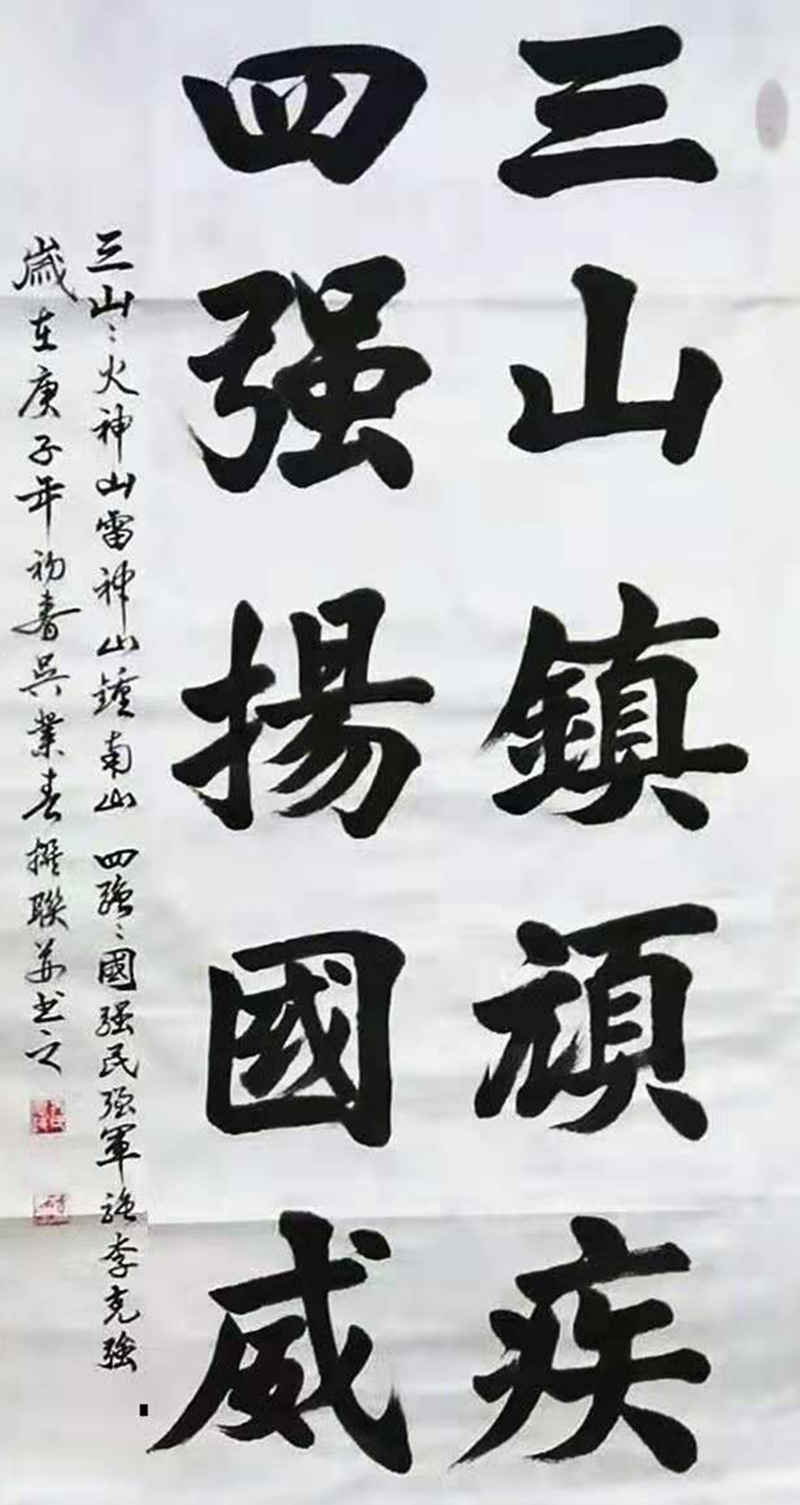 三山鎮頑疾
四强揚國威
三山：火神山雷神山鍾南山 四强：國强民强軍强李克强
歲在庚子年初春吳業春撰聯並书之